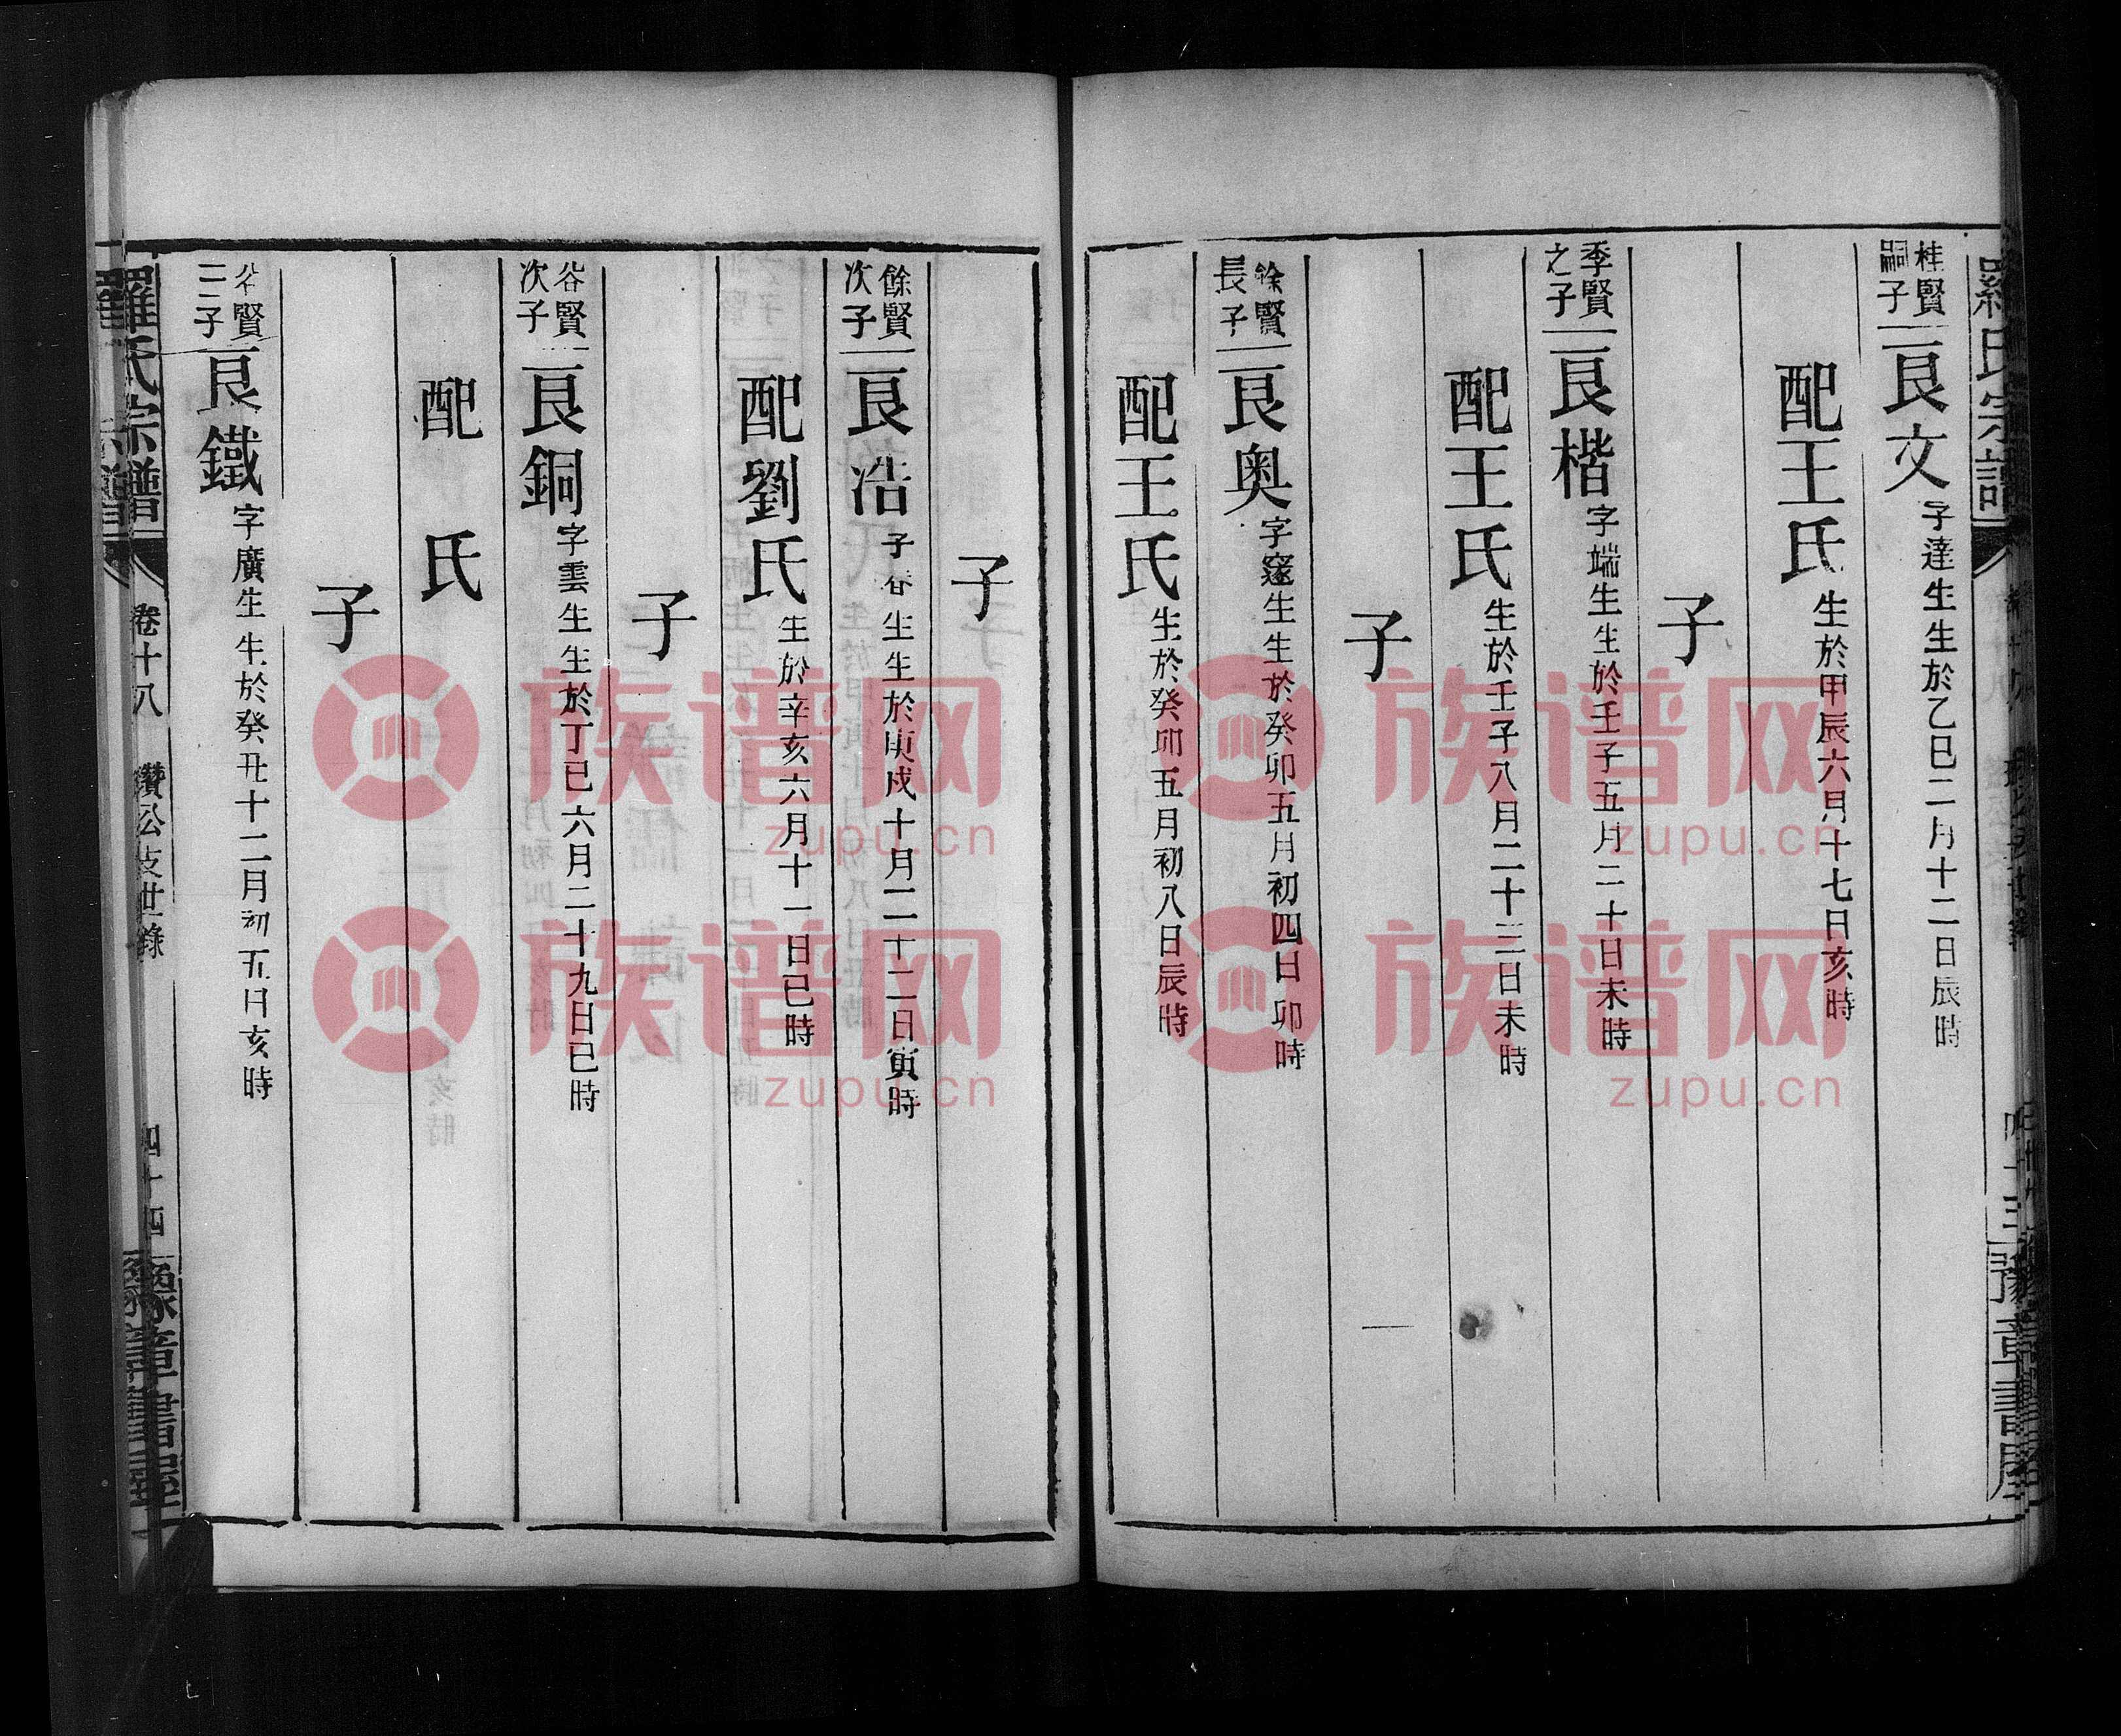 羅氏宗譜
豫章書屋
桂賢嗣子良文字達生生於乙巳二月十二日辰時
配王氏生於甲辰六月十七日亥時
子
季賢之子良楷字端生生於壬子五月二十日未時
配王氏生於壬子八月二十三日未時
子
餘賢長子良奥字邃生生於癸卯五月初四日卯時
配王氏生於癸卯五月初八日辰時
子
餘賢次子良浩字春生生於庚戌十月二十二日寅時
配劉氏生於辛亥六月十一日巳時
子
谷賢次子良銅字雲生生於丁巳六月二十九日巳時
配 氏
子
谷賢三子良鐵字廣生生於癸丑十二月初五日亥時
羅氏宗譜 卷十八 讚公支世錄 四十四 豫章書屋
族谱网
zupu.cn
族谱网
zupu.cn
族谱网
zupu.cn
族谱网
zupu.cn